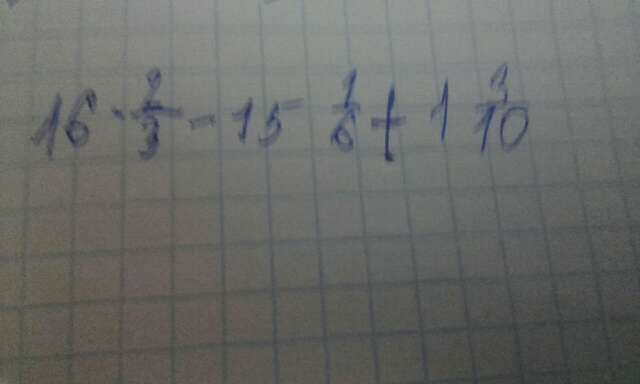 16 · 2/3 - 15 1/6 + 1 3/10